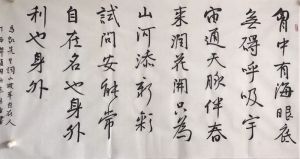 胃中有海眼底
無碍呼吸宇
宙通天脉伴春
来润花開只為
山河添新彩
試问安能带
自在名也身外
利也身外